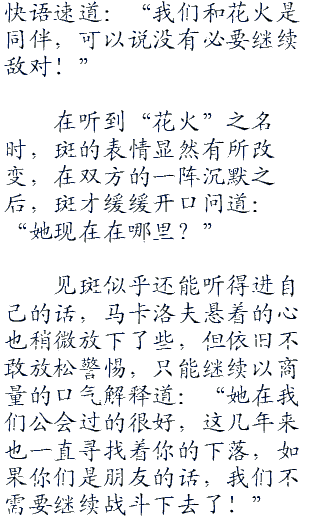 快语速道：“我们和花火是
同伴，可以说没有必要继续
敌对！”
在听到“花火”之名
时，斑的表情显然有所改
变，在双方的一阵沉默之
后，斑才缓缓开口问道：
“她现在在哪里？”
见斑似乎还能听得进自
己的话，马卡洛夫悬着的心
也稍微放下了些，但依旧不
敢放松警惕，只能继续以商
量的口气解释道：“她在我
们公会过的很好，这几年来
也一直寻找着你的下落，如
果你们是朋友的话，我们不
需要继续战斗下去了！”